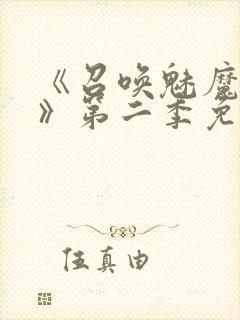 《召唤魅魔
》第二季免
伍真由